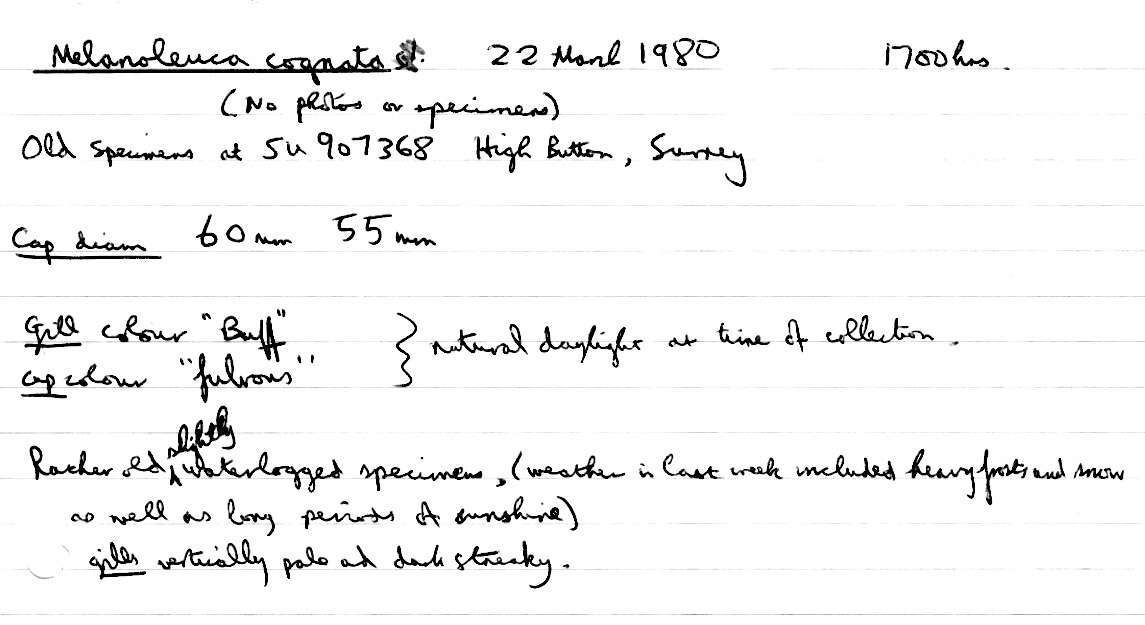 Melanoleuca cognata 22 March 1980 1700hrs.
(No photos or specimens)
Old Specimens at SU 907368 High Button, Surrey
Cap diam 60mm 55mm
Gill colour "Buff"
cap colour "fulvous"
} natural daylight at time of collection.
slightly
Rather old ^ waterlogged specimens, (weather in last week included heavy frosts and snow
as well as long periods of sunshine)
gills vertically pale and dark streaky.